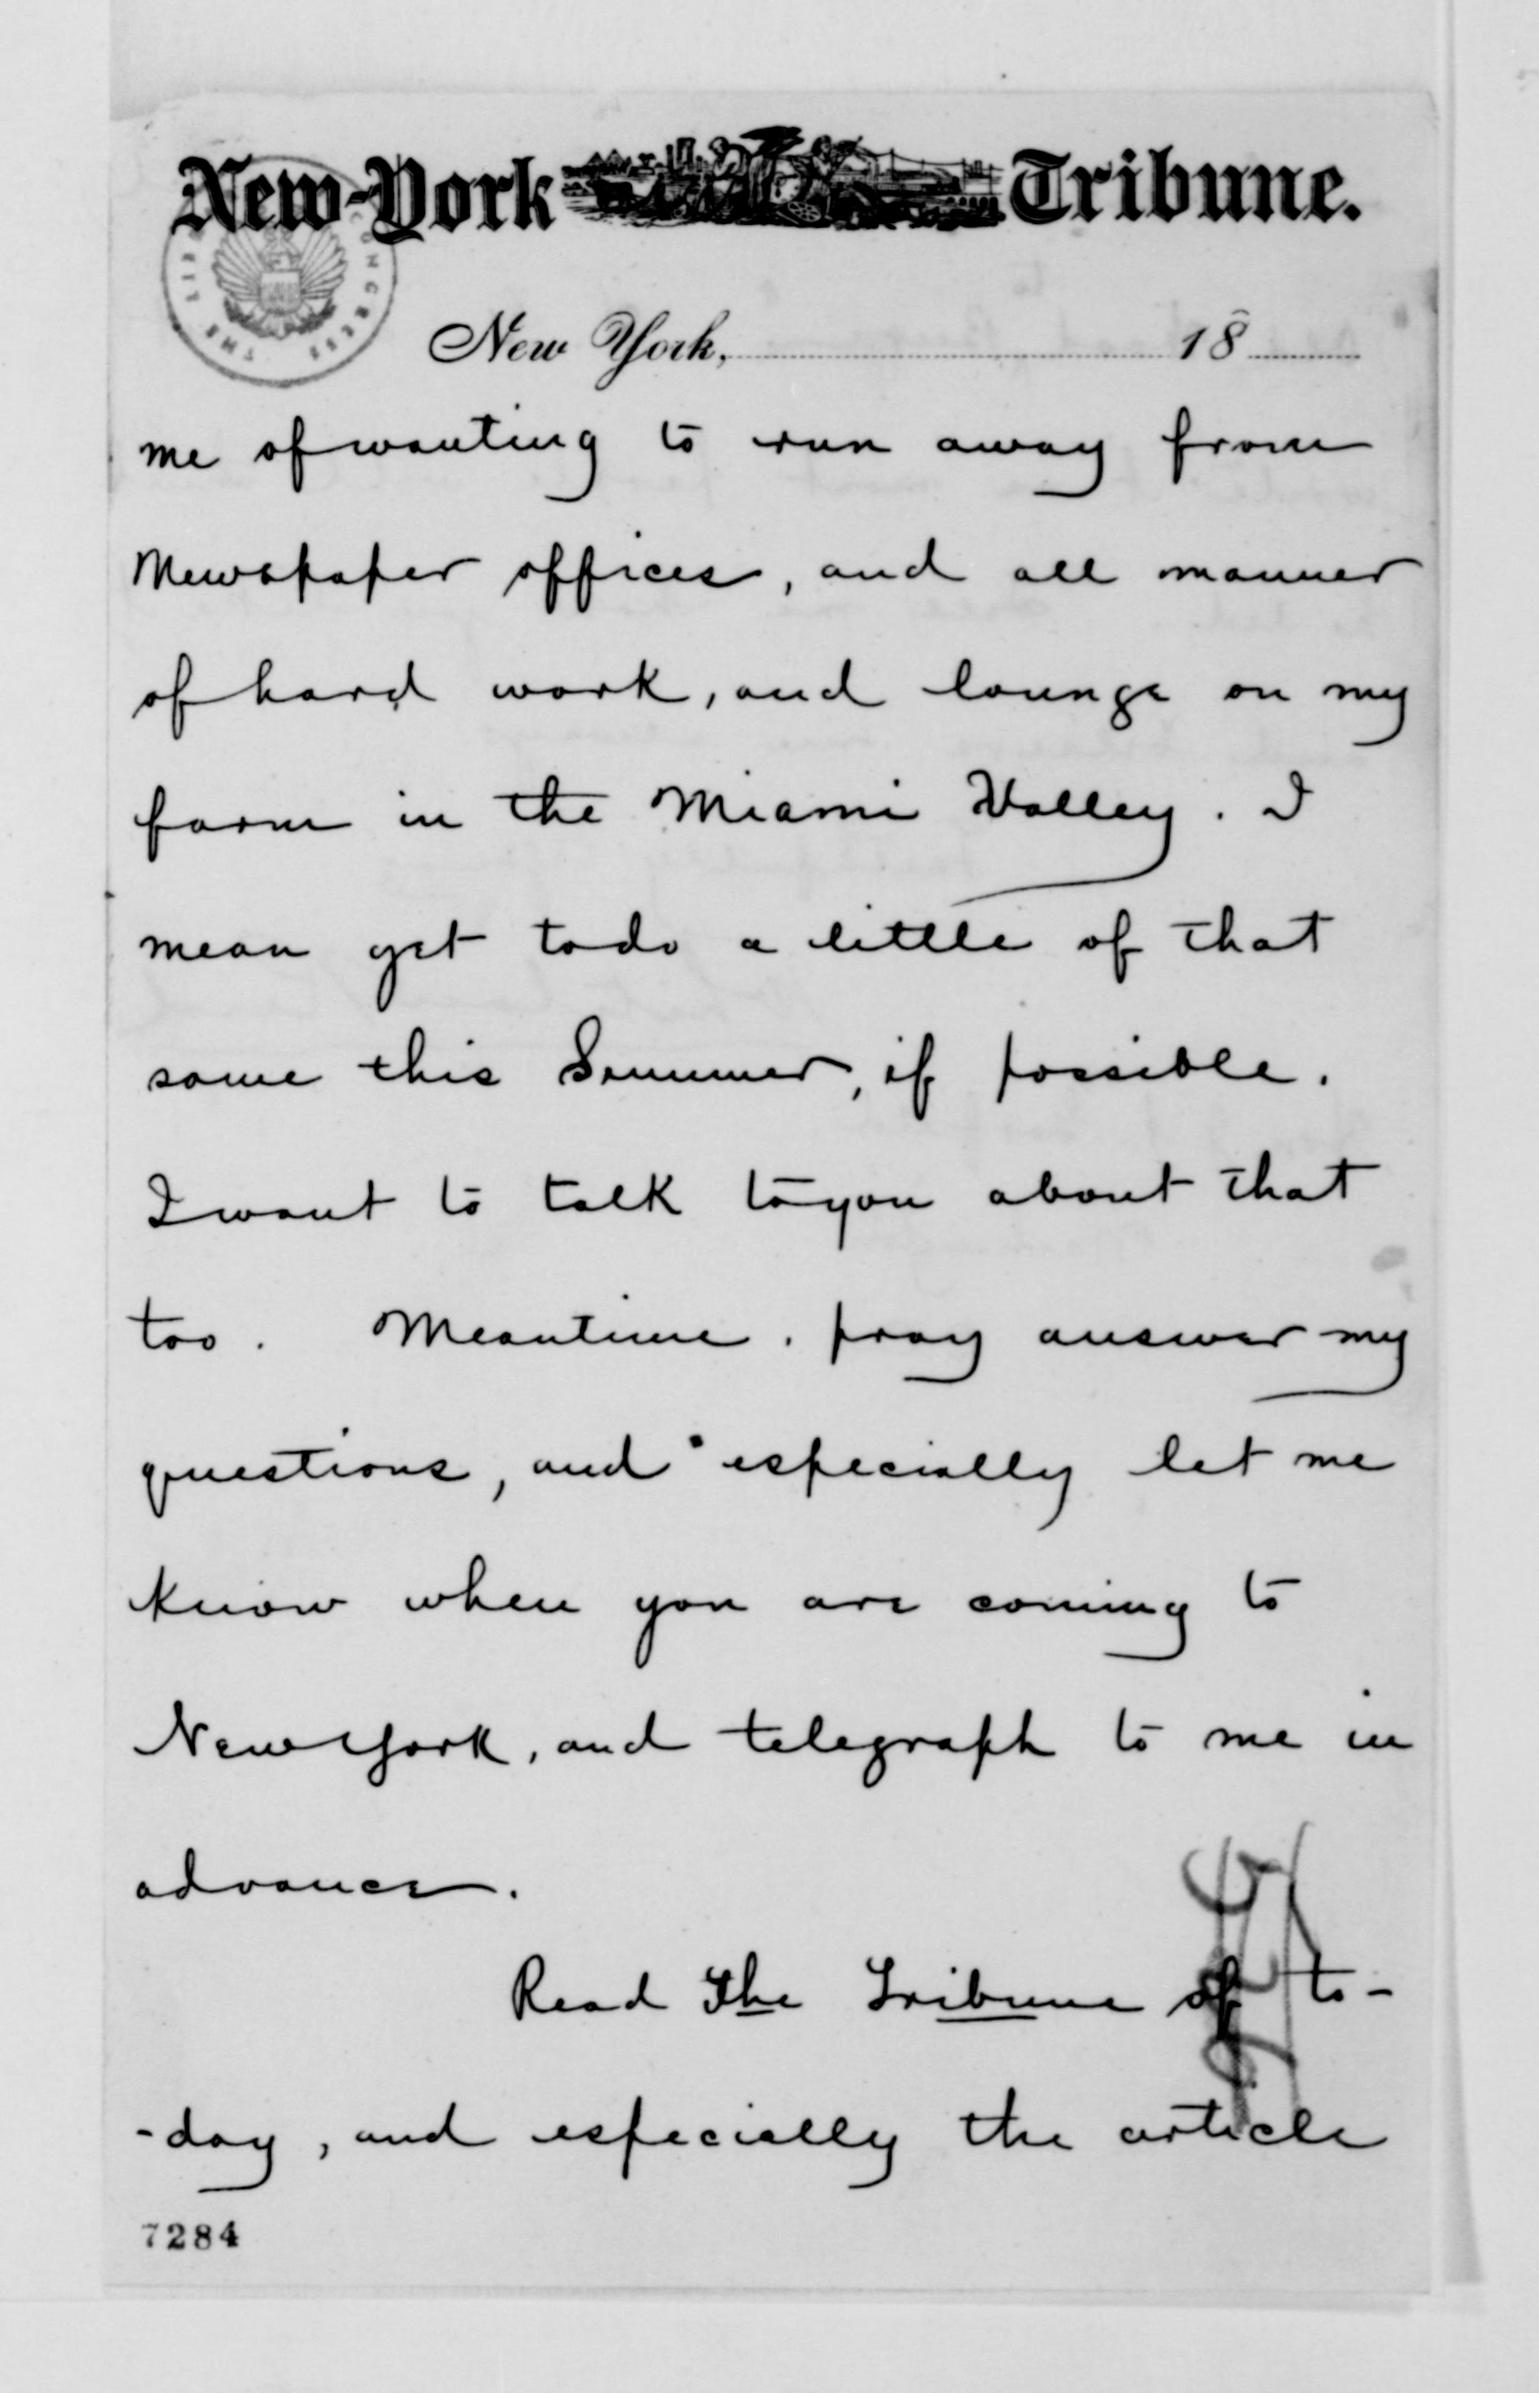 New-York Tribune.
New York, 18
me of wanting to run away from
Newspaper offices, and all manner
of hard work, and lounge on my
farm in the Miami Valley. I
mean yet to do a little of that
same this Summer, if possible.
I want to talk to you about that
too. Meantime. pray answer my
questions, and especially let me
know when you are coming to
New York, and telegraph to me in
advance.
Read The Tribune of to-
-day, and especially the article
7284